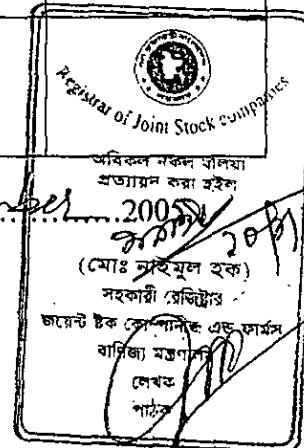 Registrar of Joint Stock Companies
অবিকল নকল বলিয়া
প্রত্যায়ন করা হইল
2005
(মোঃ নাইমুল হক)
সহকারী রেজিষ্ট্রার
জয়েন্ট ষ্টক কোম্পানিজ এন্ড ফার্মস
বাণিজ্য মন্ত্রণালয়
লেখক
পাঠক